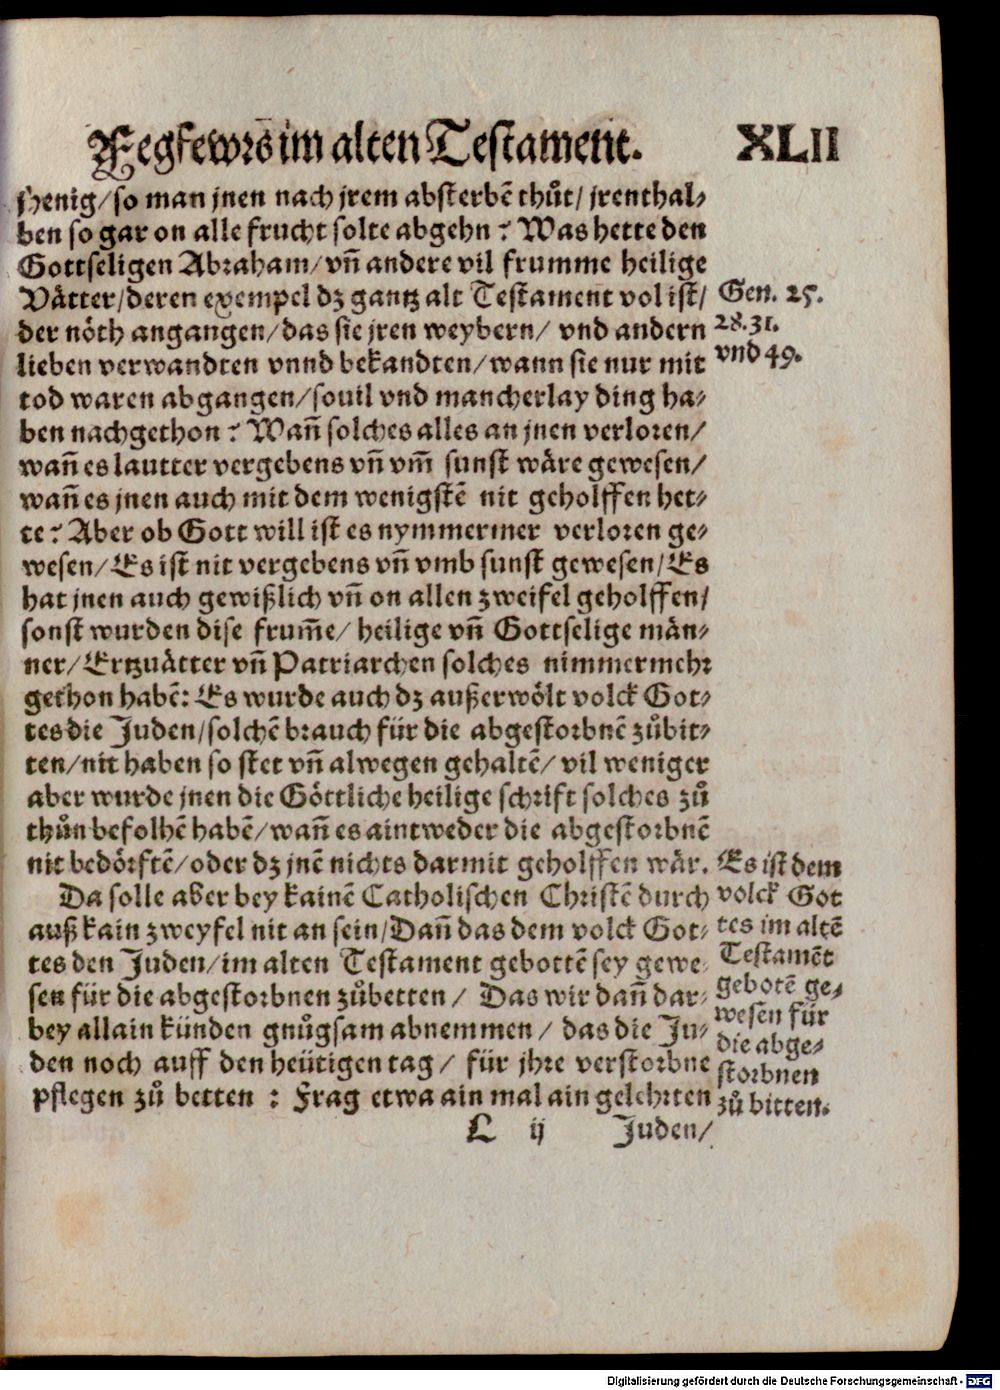 Fegfewrs im alten Testament. XLII
henig/so man jnen nach jrem absterbē thůt/ jrenthal⸗
ben so gar on alle frucht solte abgehn? Was hette den
Gottseligen Abraham/vñ andere vil frumme heilige
Vätter/deren exempel dz gantz alt Testament vol ist/
der nöth angangen/das sie jren weybern/ vnd andern
lieben verwandten vnnd bekandten/wann sie nur mit
tod waren abgangen/souil vnd mancherlay ding ha⸗
ben nachgethon? Wañ solches alles an jnen verloren/
wañ es lautter vergebens vñ vm̄ sunst wäre gewesen/
wañ es jnen auch mit dem wenigstē nit geholffen het⸗
te? Aber ob Gott will ist es nymmermer verloren ge⸗
wesen/Es ist nit vergebens vñ vmb sunst gewesen/Es
hat jnen auch gewißlich vñ on allen zweifel geholffen/
sonst wurden dise frum̄e/ heilige vñ Gottselige män⸗
ner/Ertzuätter vñ Patriarchen solches nimmermehr
gethon habē: Es wurde auch dz außerwölt volck Got⸗
tes die Juden/solchē brauch für die abgestorbnē zůbit⸗
ten/nit haben so stet vñ alwegen gehaltē/ vil weniger
aber wurde jnen die Göttliche heilige schrift solches zů
thůn befolhē habē/wañ es aintweder die abgestorbnē
nit bedörftē/oder dz jnē nichts darmit geholffen wär.
Da solle aber bey kainē Catholischen Christē durch
auß kain zweyfel nit an sein/Dañ das dem volck Got⸗
tes den Juden/im alten Testament gebottē sey gewe⸗
sen für die abgestorbnen zůbetten/ Das wir dañ dar⸗
bey allain künden gnůgsam abnemmen/ das die Ju⸗
den noch auff den heütigen tag/ für jhre verstorbne
pflegen zů betten: Frag etwa ain mal ain gelehrten
L ij Juden/
Gen. 25.
28.31.
vnd 49.
Es ist dem
volck Got
tes im altē
Testamēt
gebotē ge⸗
wesen für
die abge⸗
storbnen
zů bitten.
Digitalisierung gefördert durch die Deutsche Forschungsgemeinschaft - DFG